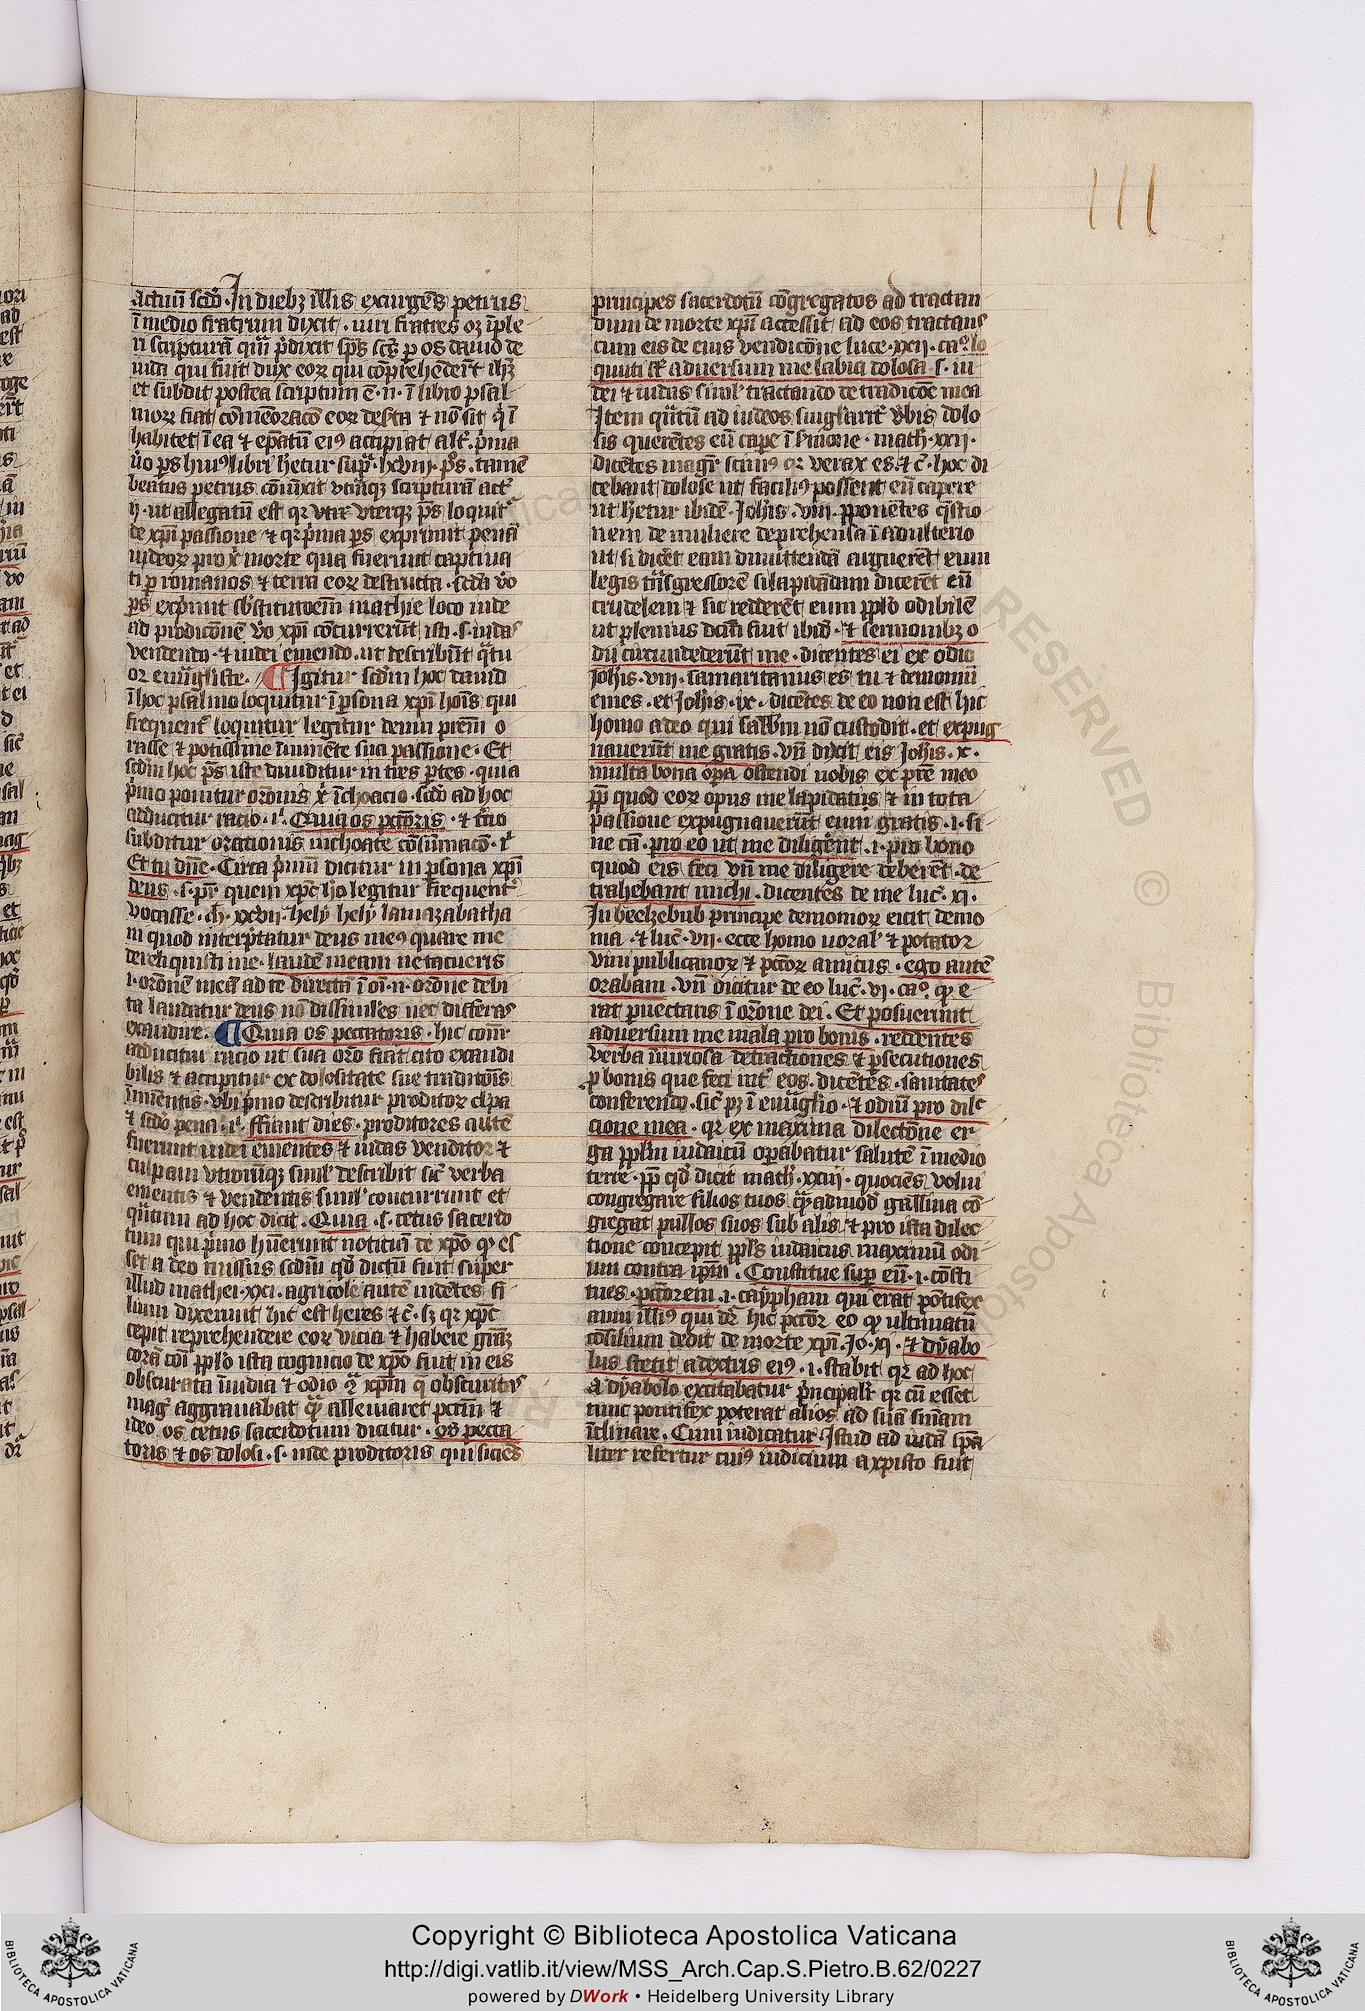 111
actuū scdo. In diebꝫ illis exurgēs petrus
ī medio fratrum dixit. uiri fratres oꝫ īple
ri scripturā quā p̄dixit sp̄s scs̄ ꝑ os dauid de
iuda qui fuit dux eoꝝ qui cōprehenderūt ihm̄
et subdit postea scriptum ē. n. ī libro psal
moꝝ fiat cōmēoracō eoꝝ deserta ⁊ nō sit qͥ ī
habitet ī ea ⁊ ep̄atū eiꝰ accipiat alt̄. p̄ma
uͦo ps huiꝰ libri hetur supᷓ. lxviii. ps̄. tamē
beatus petrus cōiūxit vtrāqꝫ scripturā act̄
ij. ut allegatū est qꝛ vterqꝫ ps̄ loquit̄
de xp̄i passione ⁊ qꝛ p̄ma ps̄ exprimit penā
iudeoꝝ pro xͥ morte qua fuerunt captiua
ti ꝑ romanos ⁊ terra eoꝝ destructa. scda uͦo
ps̄ exprimit sb̓stitutoēm mathie loco iude
ad prodicōnē uͦo xp̄i cōcurrerūt isti. s. iudas
vendendo. ⁊ iudei emendo. ut describūt qᷓtu
or euāgliste. ¶ Igitur scdm hoc dauid
ī hoc psalmo loquitur ī ꝑsona xp̄i hoīs qui
frequent̄ loquitur legitur deum prem̄ o
rasse ⁊ potissime īminēte sua passione. Et
scdm hoc ps̄ iste diuiditur in tres ꝑtes. quia
p̄mo ponitur orōnis xͥ īchoacio. scdo ad hoc
adducitur racio. iͥ. Quia os pctōris. ⁊ tͨio
subditur orationis inchoate cōsūmacō. iͥ
Et tu dn̄e. Circa p̄mū dicitur in ꝑsona xp̄i
deus. s. pr̄ quem xp̄c hō legitur frequent̄
vocasse. M̄. xxvii. hely hely lamazabatha
ni quod interp̄tatur deus meꝰ quare me
dereliquisti me. laudē meam ne tacueris
i. orōnem meā ad te directā ī oī. n. orōne debi
ta laudatur deus nō dissimules nec differas
exaudire. ¶ Quia os peccatoris. hic com̄r
adducitur racio ut sua orō fiat cito exaudi
bilis ⁊ accipitur ex dolositate sue traditōis
īminentis. vbi p̄mo describitur proditoꝝ clpa
⁊ scdo pena. iͥ. ffiant dies. proditores autē
fuerunt iudei ementes ⁊ iudas venditor ⁊
culpam vtrorūqꝫ simul describit sic̄ verba
ementis ⁊ vendentis simul concurrunt et
qᷓtum ad hoc dicit. Quia. s. cetus sacerdo
tum qui p̄mo hūerunt notitiā de xp̄o qꝫ es
set a deo missus scdm qd̄ dictū fuit super
illud mathei. xxi. agricole autē uidētes fi
lium dixerunt hic est heres ⁊ c̄. sꝫ qꝛ xp̄c
cepit reprehendere eoꝝ vicia ⁊ habere gᷓm
corā coī pplo ista cognicio de xp̄o fuit in eis
obscurata īuidia ⁊ odio
mag̓ aggrauabat qᷓ alleuiaret pctm̄ ⁊
ideo os cetus sacerdotum dicitur. os pecca
toris ⁊ os dolosi. s. iude proditoris qui sciēs
principes sacerdotū cōgregatos ad tractan
dum de morte xp̄i accessit ad eos tractans
cum eis de eius vendicōne luce. xxii. caͦ. lo
quuti sūt aduersum me labia dolosa. s. iu
dei ⁊ iudas simul tractando de tradicōe mea
Item qᷓtū ad iudeos singlarit̄ v̓bis dolo
sis querētes eū cape ī s̓mone. math̄. xxii.
dicētes magr̄ scimꝰ qꝛ verax es. ⁊ c̄. hoc di
cebant dolose ut faciliꝰ possent eū capere
ut hetur ibidē. Joh̄is. viii. ꝓponētes q̄stio
nem de muliere deprehensa ī adulterio
ut si dicēt eam dimittendā arguerēt eum
legis trāsgressorē si lapidādam dicerēt eū
crudelem ⁊ sic redderēt eum pplo odibilē
ut plenius dcm̄ fuit ibid̄. ⁊ sermonibꝫ o
dii circundederūt me. dicentes ei ex odio
Joh̄is. viii. samaritanus es tu ⁊ demoniū
emes. et Joh̄is. ix. dicētes de eo non est hic
homo a deo qui sabbm nō custodit. et expug
nauerūt me gratis. vn̄ dixit eis Joh̄is. x.
multa bona oꝑa ostendi uobis ex pre meo
ꝓp̄ quod eoꝝ opus me lapidatis ⁊ in tota
passione expugnauerūt eum gratis. i. si
ne cā. pro eo ut me diligerēt. i. pro bono
quod eis feci vn̄ me diligere deberēt. de
trahebant michi. dicentes de me luc̄. xi.
In beelzebub principe demonioꝝ eicit demo
nia. ⁊ luc̄. vii. ecce homo uorax ⁊ potator
vini publicanoꝝ ⁊ pctōꝝ amicus. ego autē
orabam. vn̄ dicitur de eo luc̄. vi. caͦ. qꝫ e
rat pnoctans ī orōne dei. Et posuerunt
aduersum me mala pro bonis. reddentes
verba īiuriosa detractiones ⁊ ꝑsecutiones
ꝓ bonis que feci int̄ eos. dicētes. sanitates
conferendo. sic̄ pꝫ ī euāglio. ⁊ odiū pro dilc̄
cione mea. qꝛ ex maxima dilectōne er
ga pplm iudaicū oꝑabatur salutē ī medio
terre. ꝓp̄ qd̄ dicit math̄. xxiii. quociēs volui
congregare filios tuos qᷓadmod̄ gallina cō
gregat pullos suos sub alis. ⁊ pro ista dilec
tione concepit ppls iudaicus maximū odi
um contra ipm̄. Constitue suꝑ eū. i. cōsti
tues. pctōrem. i. caypham qui erat pōtifex
anni illiꝰ qui dr̄ hic pctōr eo qꝫ ultimatū
cōsilium dedit de morte xp̄i. Jo. xi. ⁊ dyabo
lus stetit a dextris eiꝰ. i. stabit qꝛ ad hoc
a dyabolo excitabatur p̄ncipalr̄ qꝛ cū esset
tunc pontifex poterat alios ad suā sn̄iam
īclinare. Cum iudicatur. Istud ad iudā sp̄a
liter refertur cuiꝰ iudicium a xpisto fuit
RESERVED © Biblioteca Aposto
Copyright © Biblioteca Apostolica Vaticana
http://digi.vatlib.it/view/MSS_Arch.Cap.S.Pietro.B.62/0227
powered by DWork • Heidelberg University Library
BIBLIOTECA APOSTOLICA VATICANA
BIBLIOTECA APOSTOLICA VATICANA